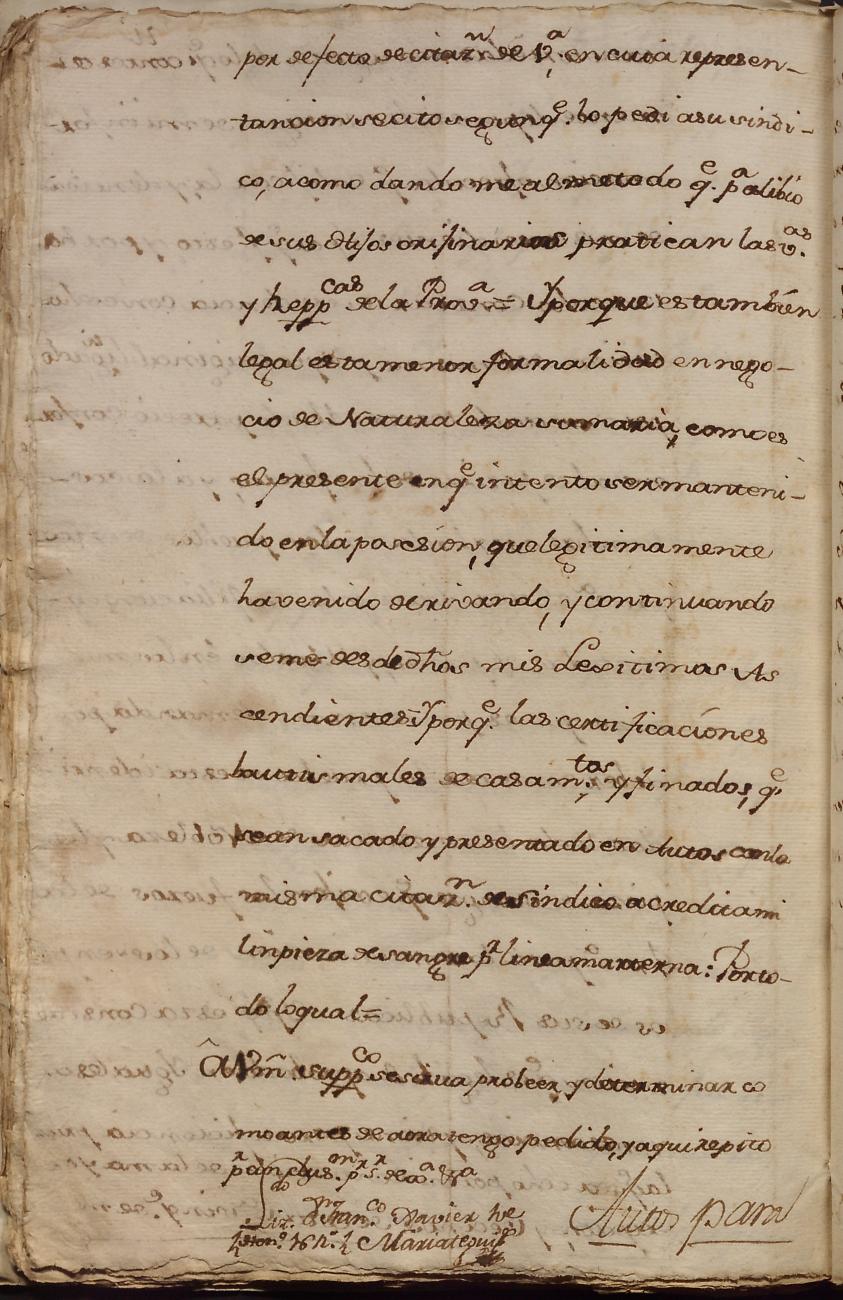 por defecto de citazn de Va. en cuia represen-
tancion se cito segun qe. lo pedi a su sindi-
co, acomodandome al metodo qe. pa alibio
de sus Hijos orijinarios pratican las vas.
y Repp.cas de la Prova = Yporque es tambien
legal esta menor formalidad en nego-
cio de Naturaleza sumaria, como es
el presente en qe intento ser manteni-
do en la posesion, que legitimamente
ha venido derivando, y continuando
seme desde dhos mis Lexitimos As
cendientes: Yporqe. las certificaciones
bautismales de casamtos. y finados, qe
sean sacado y presentado en Autos con la
misma citazn. de sindico acredita mi
linpieza de sangre pr linea marterna: Porto-
do lo qual =
A Vm. suppco se sirva probeer y determinar co
mo antes de aora tengo pedido, y aqui repito
Liz.do Dn Franco. Xavier
Mariategui
Autos Pam